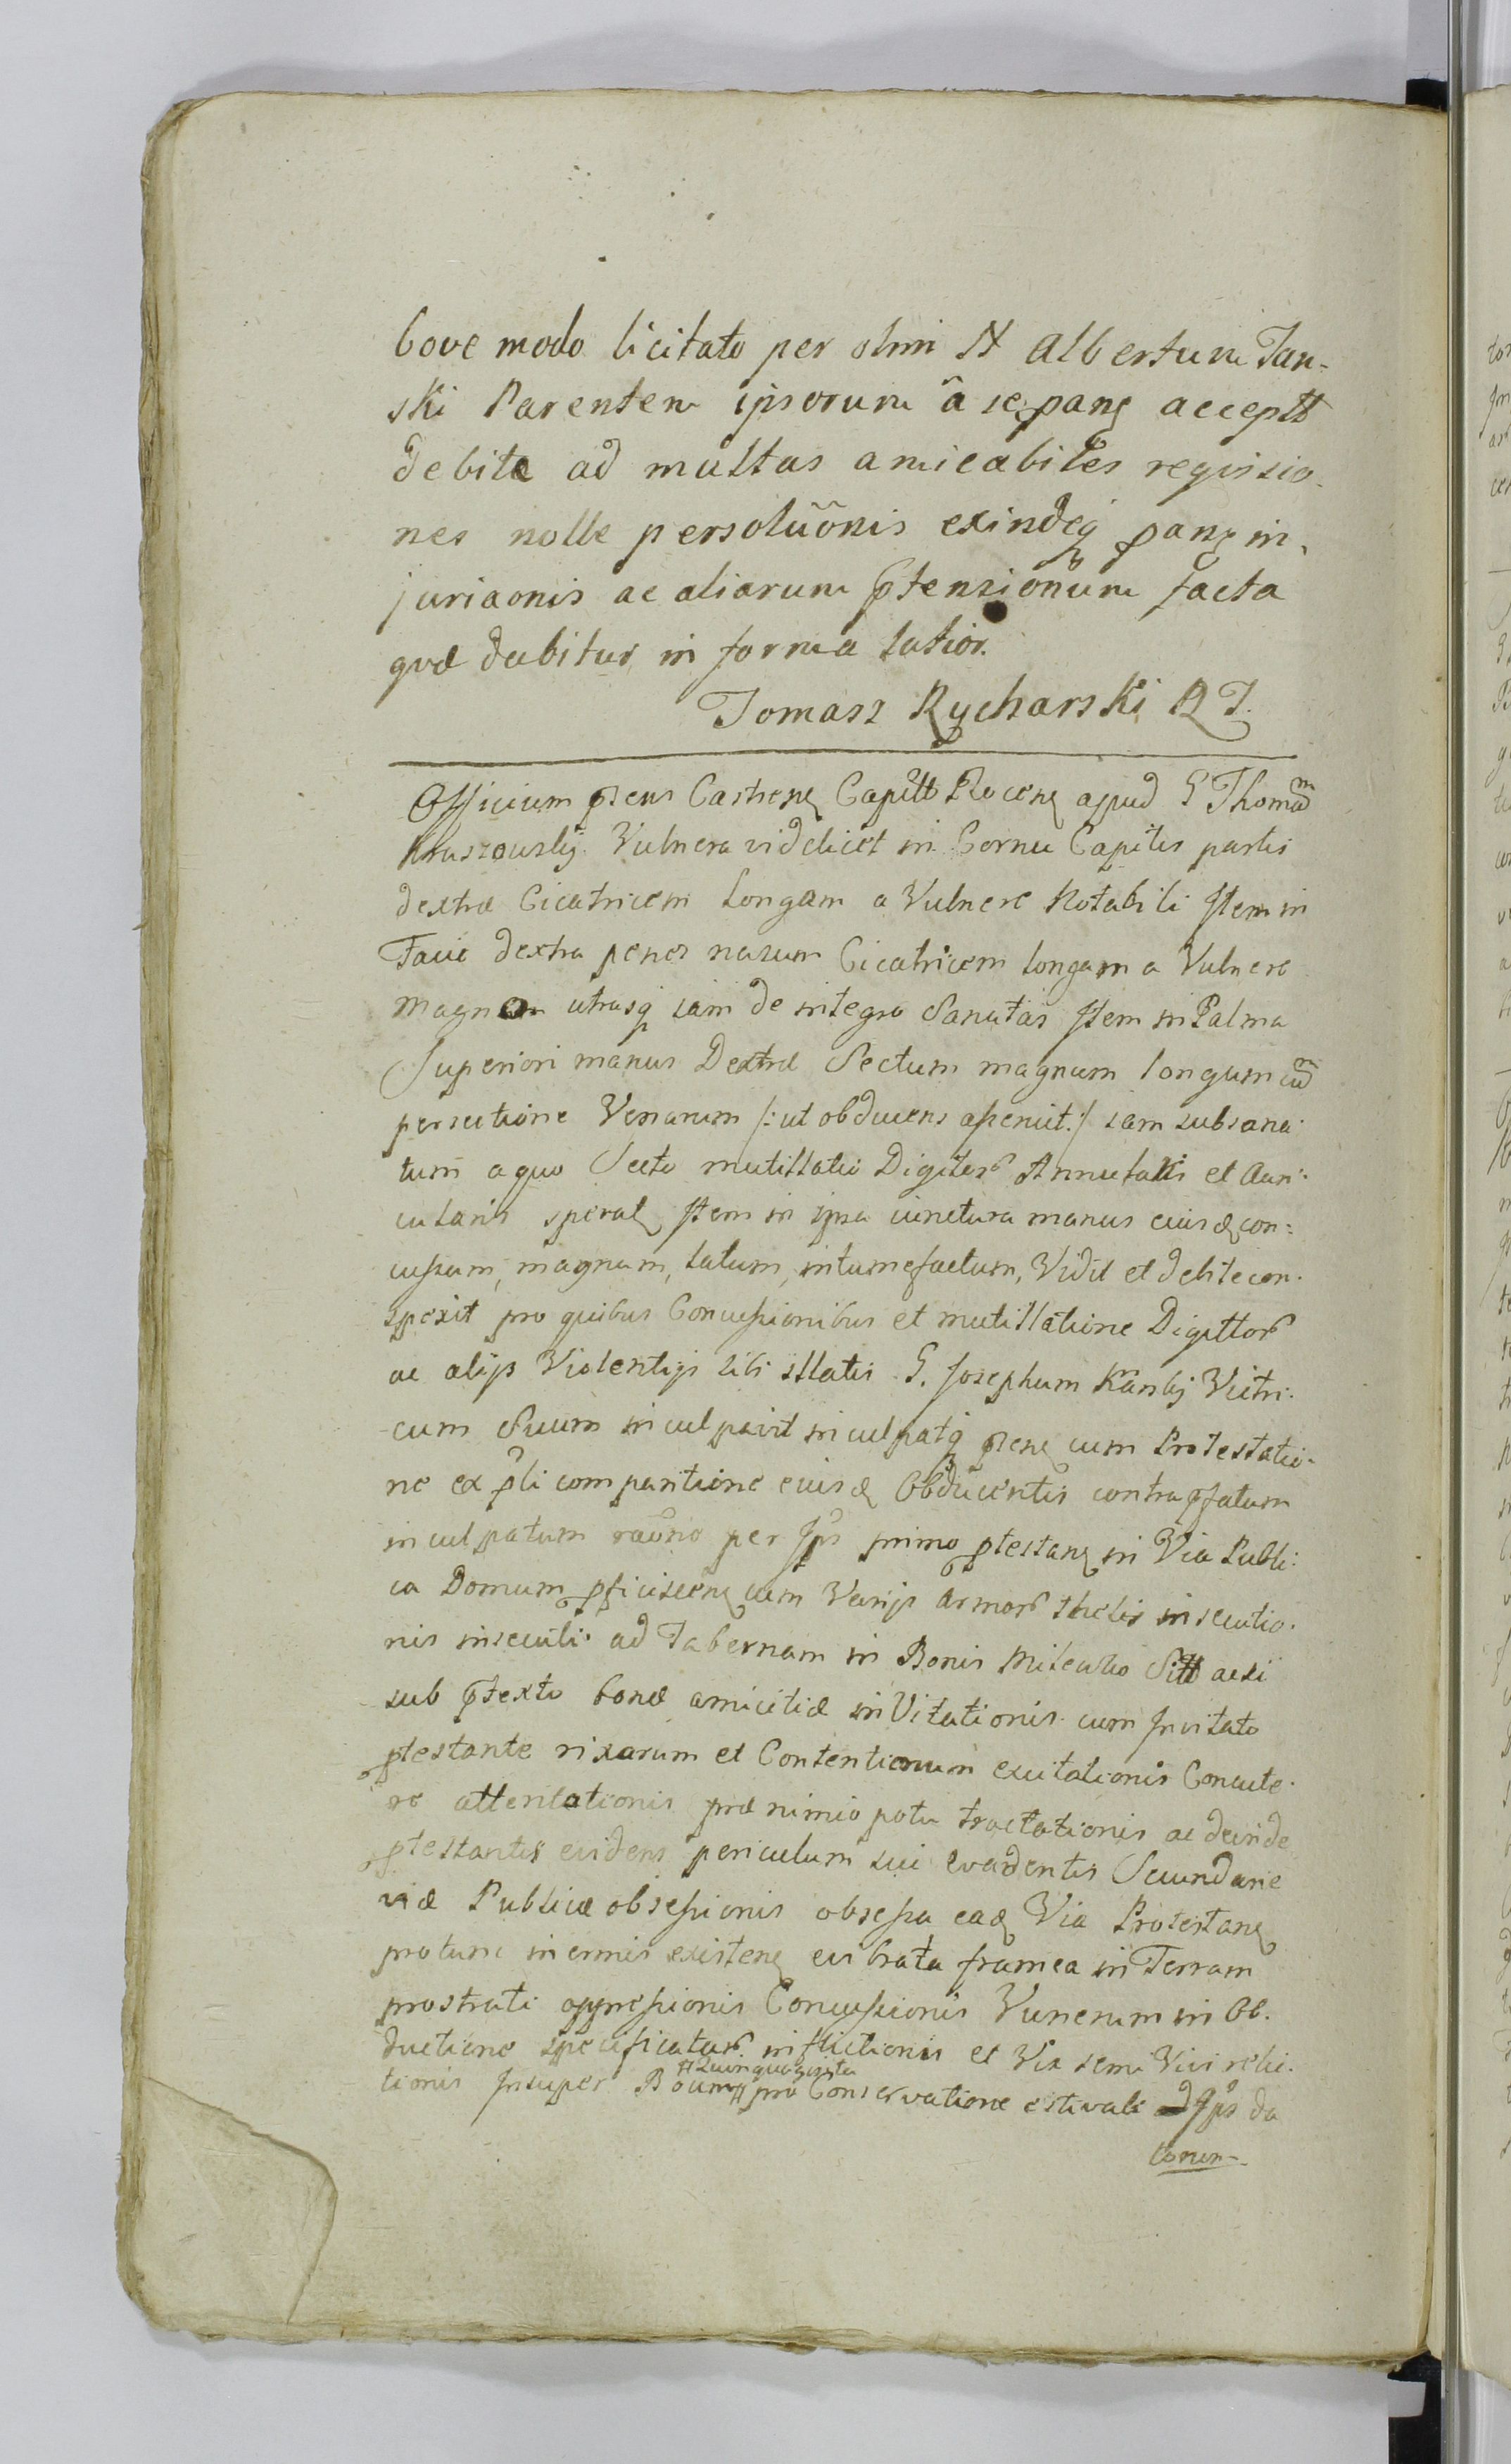 bove modo licitato per olim N Albertum Tan-
ski Parentem ipsorum â se pang accepttt
debite ad multas amicabiles reqvisio-
nes nolle persolūonis exindeq pang in-
juriaonis ac aliarum ptensionum facta
qvæ dabitur in forma latior.
Tomasz Rycharski R T.
Officium prens Castrens Capittt Plocens apud G Thomam
Kruszewskj Vulnera videlicet in Cornu Capitis partis
dextræ Cicatricem Longam a Vulnere Notabili Item in
Facie dextra penes nasum Cicatricem longam a Vulnere
Magnam utrasq iam de integro Sanatas Item in Palma
Superiori manus Dextræ Sectum magnum longum cum
persectione Venarum /: ut obducens aperuit :/ iam subsana-
tum a quo Secto mutillatio Digitor Annulalis et Auri-
cularis sperat Item in ipsa iunctura manus eiusd con-
cussam, magnam, latum, intumefactum, Vidit et debite con-
spexit pro quibus Concussionibus et mutillatione Digittor
ac alijs Violentijs sibi illatis G. Josephum Kanskj Vitri-
cum Suum inculpavit inculpatq prens cum Protestatio-
ne ex pli comparitione eiusd Obducentis contra pfatum
inculpatum raōne per Ips primo ptestans in Via Publi-
ca Domum pficiscens cum Varijs armor thelis insecutio-
nis insecuti ad Tabernam in Bonis Mitewko Sittt acsi
sub ptexto bonæ amicitiæ inVitationis cum Invitato
ptestante rixarum et Contentionum excitationis Concute-
re attentationis præ nimio potu tractationis ac deinde
ptestantis evidens periculum sui evadentis Secundarie
viæ Publicæ obsessionis obsessa ead Via Protestans
protunc inermis existens evibrata framea in Terram
prostrati oppressionis Concussionis Vunerum in Ob-
ductione specificatar inflictionis et Vix semi Vivi relic-
tionis Insuper Boum # Quinquaginta pro Conservatione estivali Ips da
Conser-